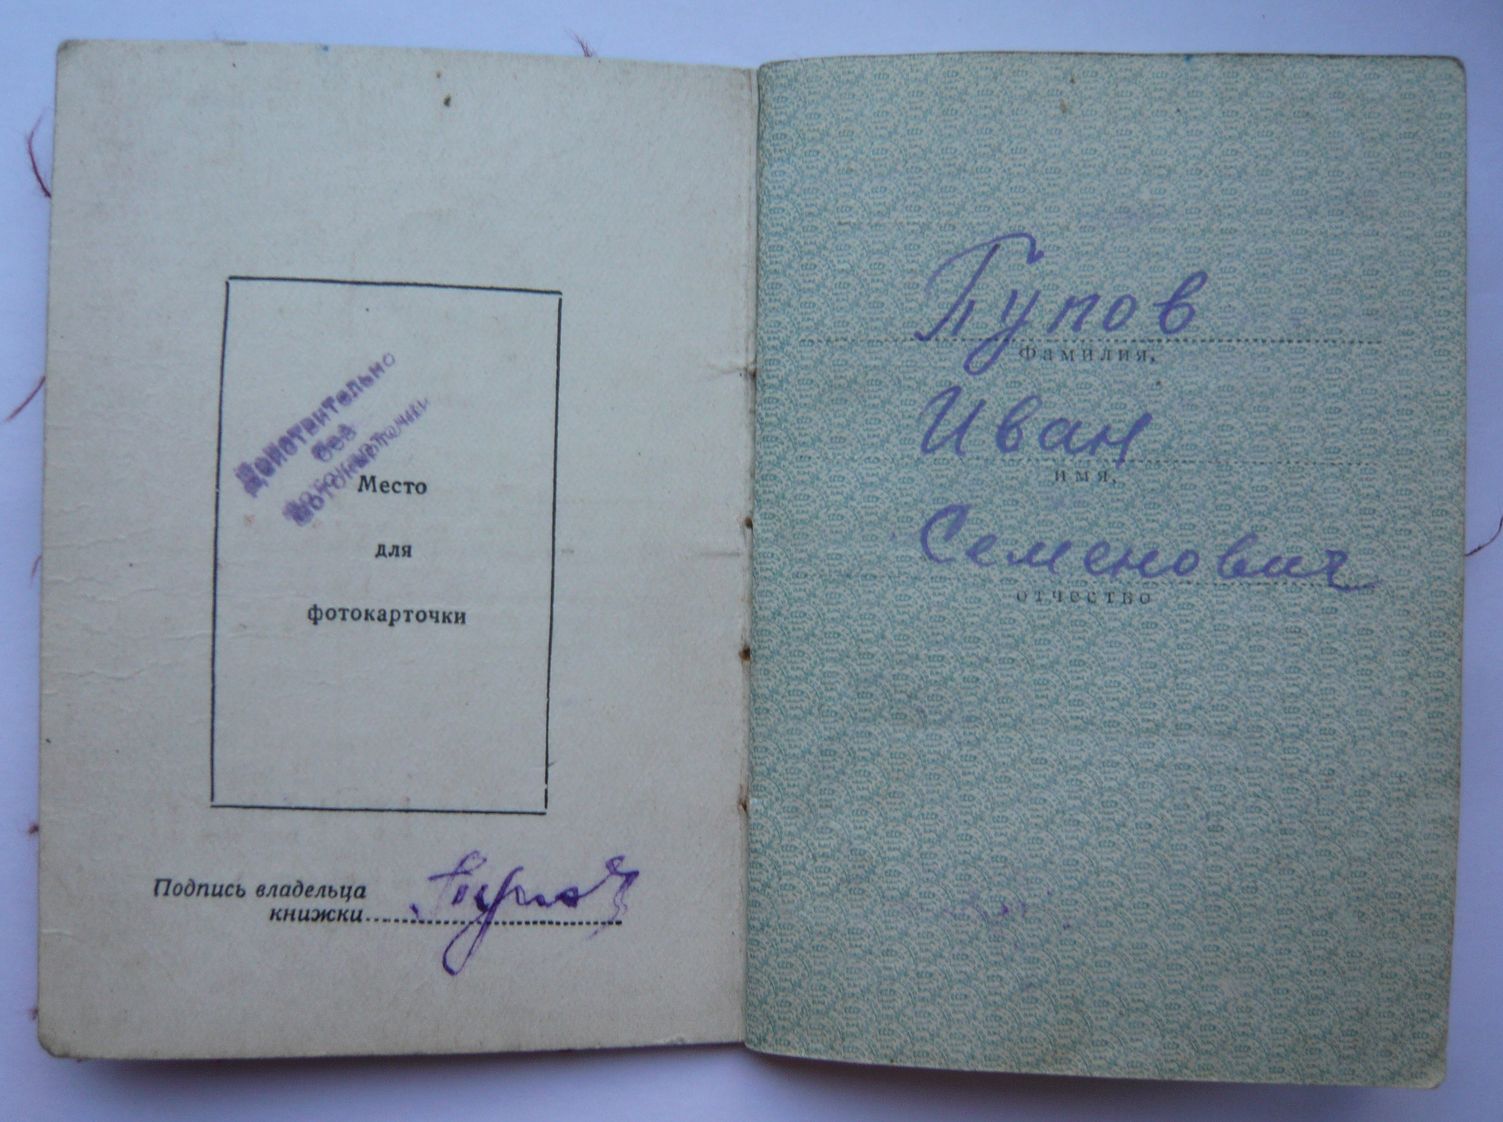 Действительно
без
фотокарточки
Место
для
фотокарточки
Подпись владельца
книжки
Пупов
фамилия,
Иван
имя,
Семенович
отчество